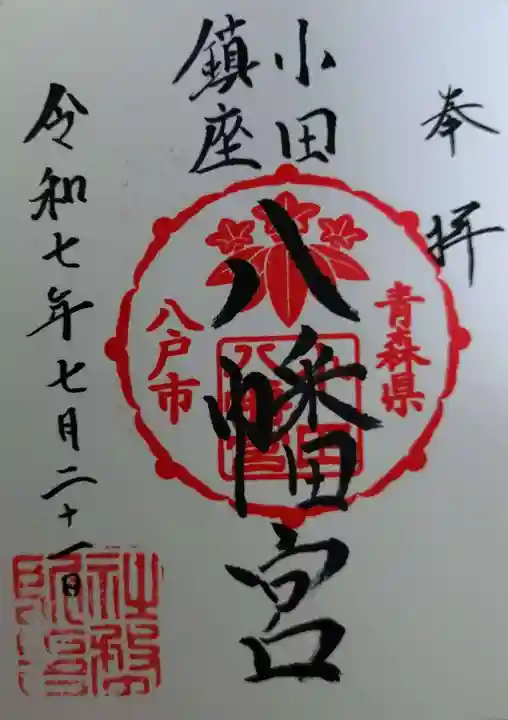 奉拝
小田
鎮座
八幡宮
青森県
八戸市
令和七年七月二十一日